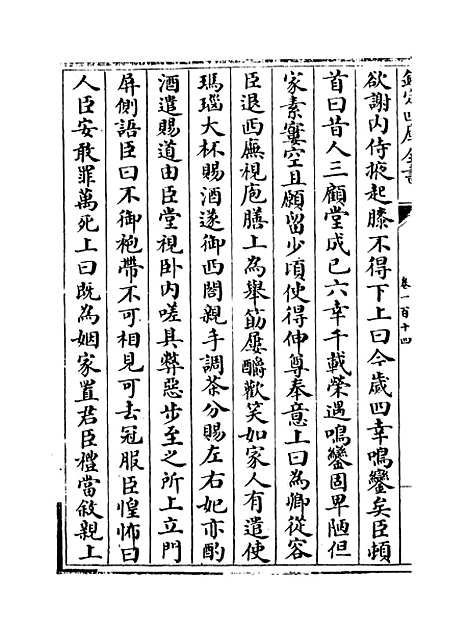 欽定四庫全書
卷一百十四
欲謝内侍掖起膝不得下上曰今歲四幸鳴鑾矣臣頓
首曰昔人三顧堂成已六幸千載榮遇鳴鑾固卑陋但
家素窶空且願留少頃使得伸尊奉意上曰為卿從容
臣退西廡視庖膳上為舉筯屢釂歡笑如家人有遣使
瑪瑙大杯賜酒遂御西閤親手調茶分賜左右妃亦酌
酒遣賜道由臣堂視卧内嗟具弊惡步至之所上立門
屏側語臣曰不御袍帶不可相見可去冠服臣惶怖曰
人臣安敢罪萬死上曰既為姻家置君臣禮當敘親上